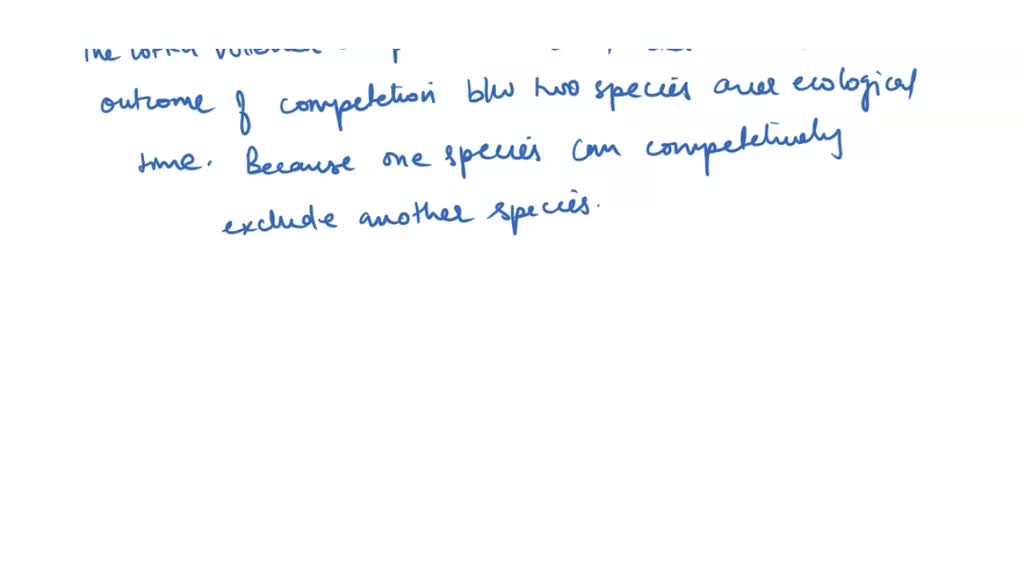 The
outcome of competetion b/w two species over ecological
time. Because one species can competetively
exclude another species.